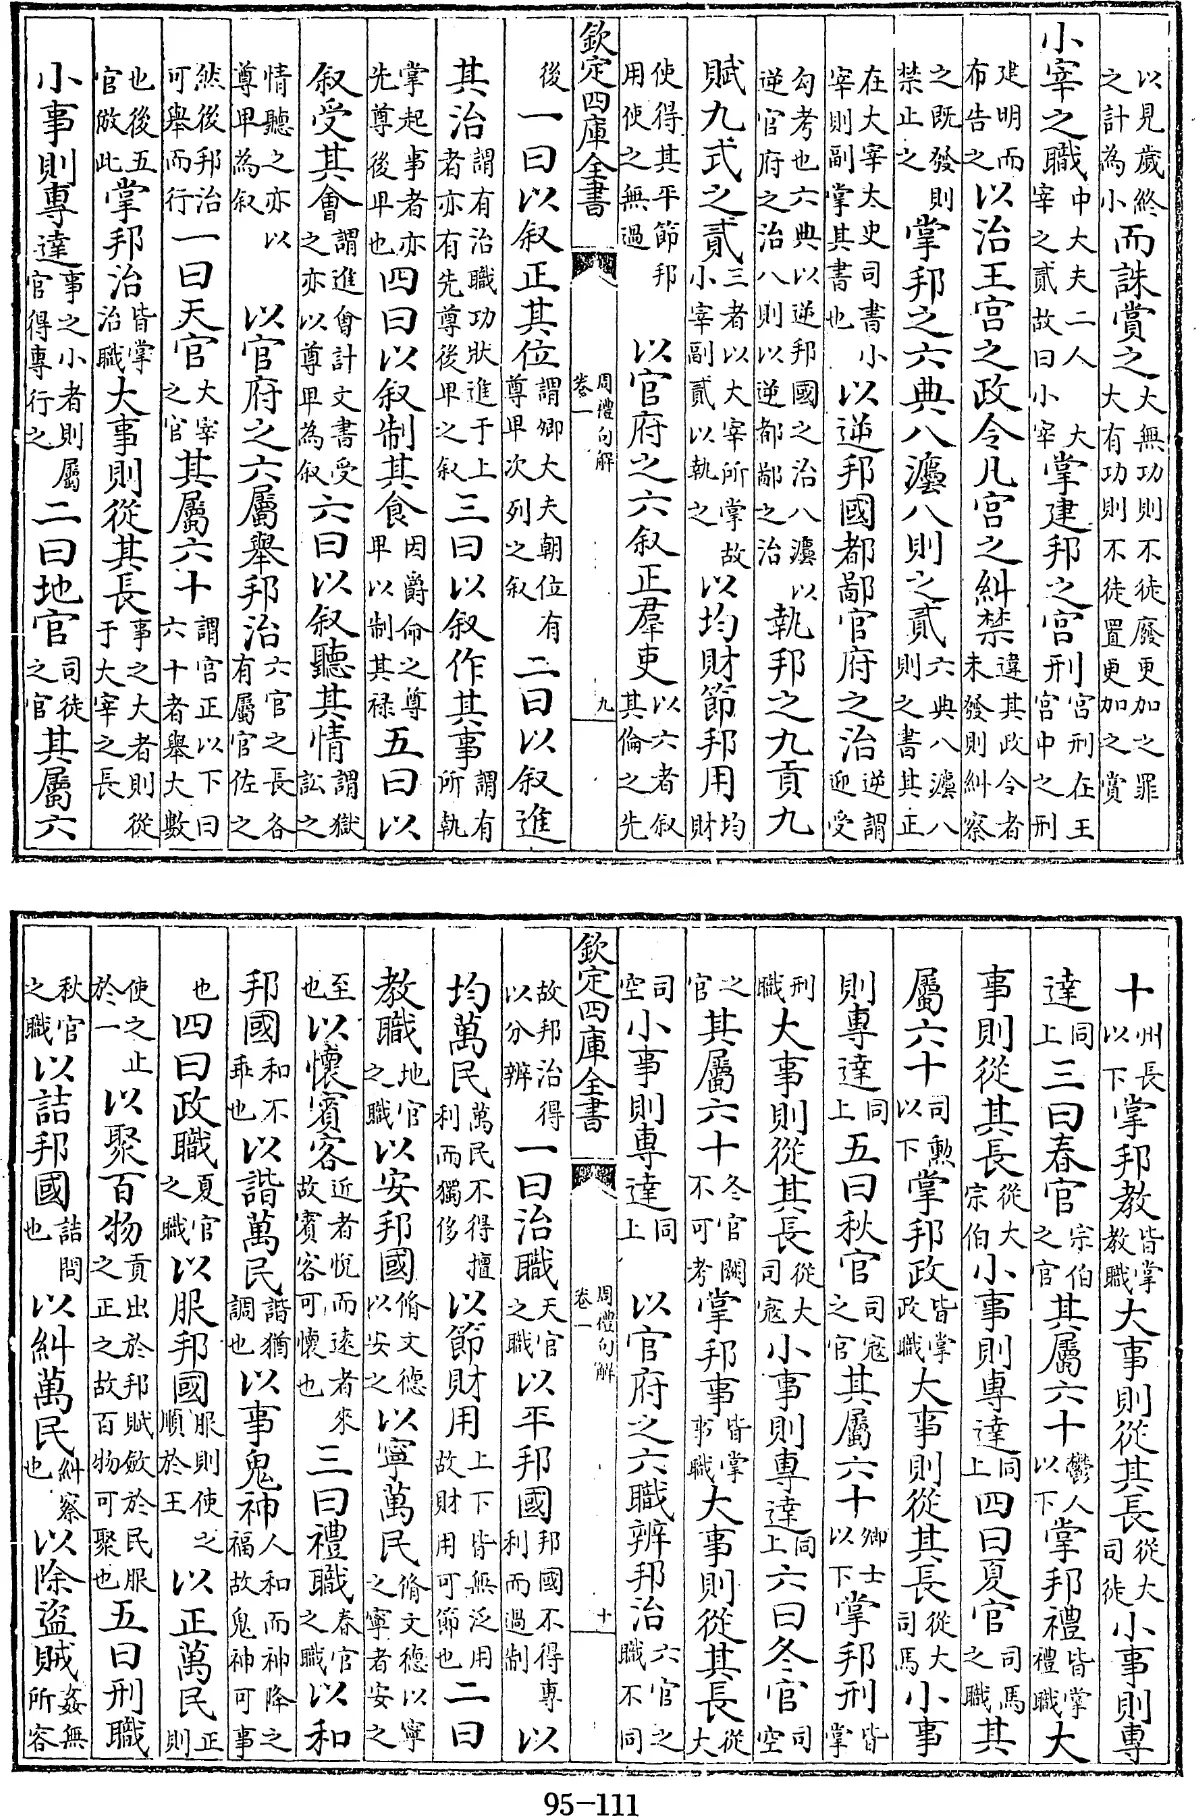 以見歲終之計為小而誅賞之大無功則不徒廢更加之罪大有功則不徒置更加之賞
小宰之職中大夫二人大宰之貳故曰小宰掌建邦之宮刑宮刑在王宮中之刑
建明而布告之以治王宮之政令凡宮之糾禁違其政令者未發則糾察
之既發則禁止之掌邦之六典八灋八則之貳六典八灋八則之書其正
在大宰太史司書小宰則副掌其書也以逆邦國都鄙官府之治逆謂迎受
勾考也六典以逆邦國之治八灋以逆官府之治八則以逆都鄙之治執邦之九貢九
賦九式之貳三者以大宰所掌故小宰副貳以執之以均財節邦用均財
使得其平節邦用使之無過以官府之六叙正羣吏以六者叙其倫之先
欽定四庫全書 周禮句解卷一 九
後一曰以叙正其位謂卿大夫朝位有尊卑次列之叙二曰以叙進
其治謂有治職功狀進于上者亦有先尊後卑之叙三曰以叙作其事謂有所執
掌起事者亦先尊後卑也四曰以叙制其食因爵命之尊卑以制其祿五曰以
叙受其會謂進會計文書受之亦以尊卑為叙六曰以叙聽其情謂獄訟之
情聽之亦以尊卑為叙以官府之六屬舉邦治六官之長各有屬官佐之
然後邦治可舉而行一曰天官大宰之官其屬六十謂宮正以下曰六十者舉大數
也後五官倣此掌邦治皆掌治職大事則從其長事之大者則從于大宰之長
小事則專達事之小者則屬官得專行之二曰地官司徒之官其屬六
十州長以下掌邦教皆掌教職大事則從其長從大司徒小事則專
達同上三曰春官宗伯之官其屬六十鬱人以下掌邦禮皆掌禮職大
事則從其長從大宗伯小事則專達同上四曰夏官司馬之職其
屬六十司勳以下掌邦政皆掌政職大事則從其長從大司馬小事
則專達同上五曰秋官司寇之官其屬六十卿士以下掌邦刑皆掌
刑職大事則從其長從大司寇小事則專達同上六曰冬官司空
之官其屬六十冬官闕不可考掌邦事皆掌事職大事則從其長從大
司空小事則專達同上以官府之六職辨邦治六官之職不同
欽定四庫全書 周禮句解卷一 十
故邦治得以分辨一曰治職天官之職以平邦國邦國不得專利而過制以
均萬民萬民不得擅利而獨侈以節財用上下皆無泛用故財用可節也二曰
教職地官之職以安邦國脩文德以安之以寧萬民脩文德以寧之寧者安之
至也以懷賓客近者悅而遠者來故賓客可懷也三曰禮職春官之職以和
邦國和不乖也以諧萬民諧猶調也以事鬼神人和而神降之福故鬼神可事
也四曰政職夏官之職以服邦國服則使之順於王以正萬民正則
使之止於一以聚百物貢出於邦賦斂於民服之正之故百物可聚也五曰刑職
秋官之職以詰邦國詰問也以糾萬民糾察也以除盜賊姦無所容
95-111